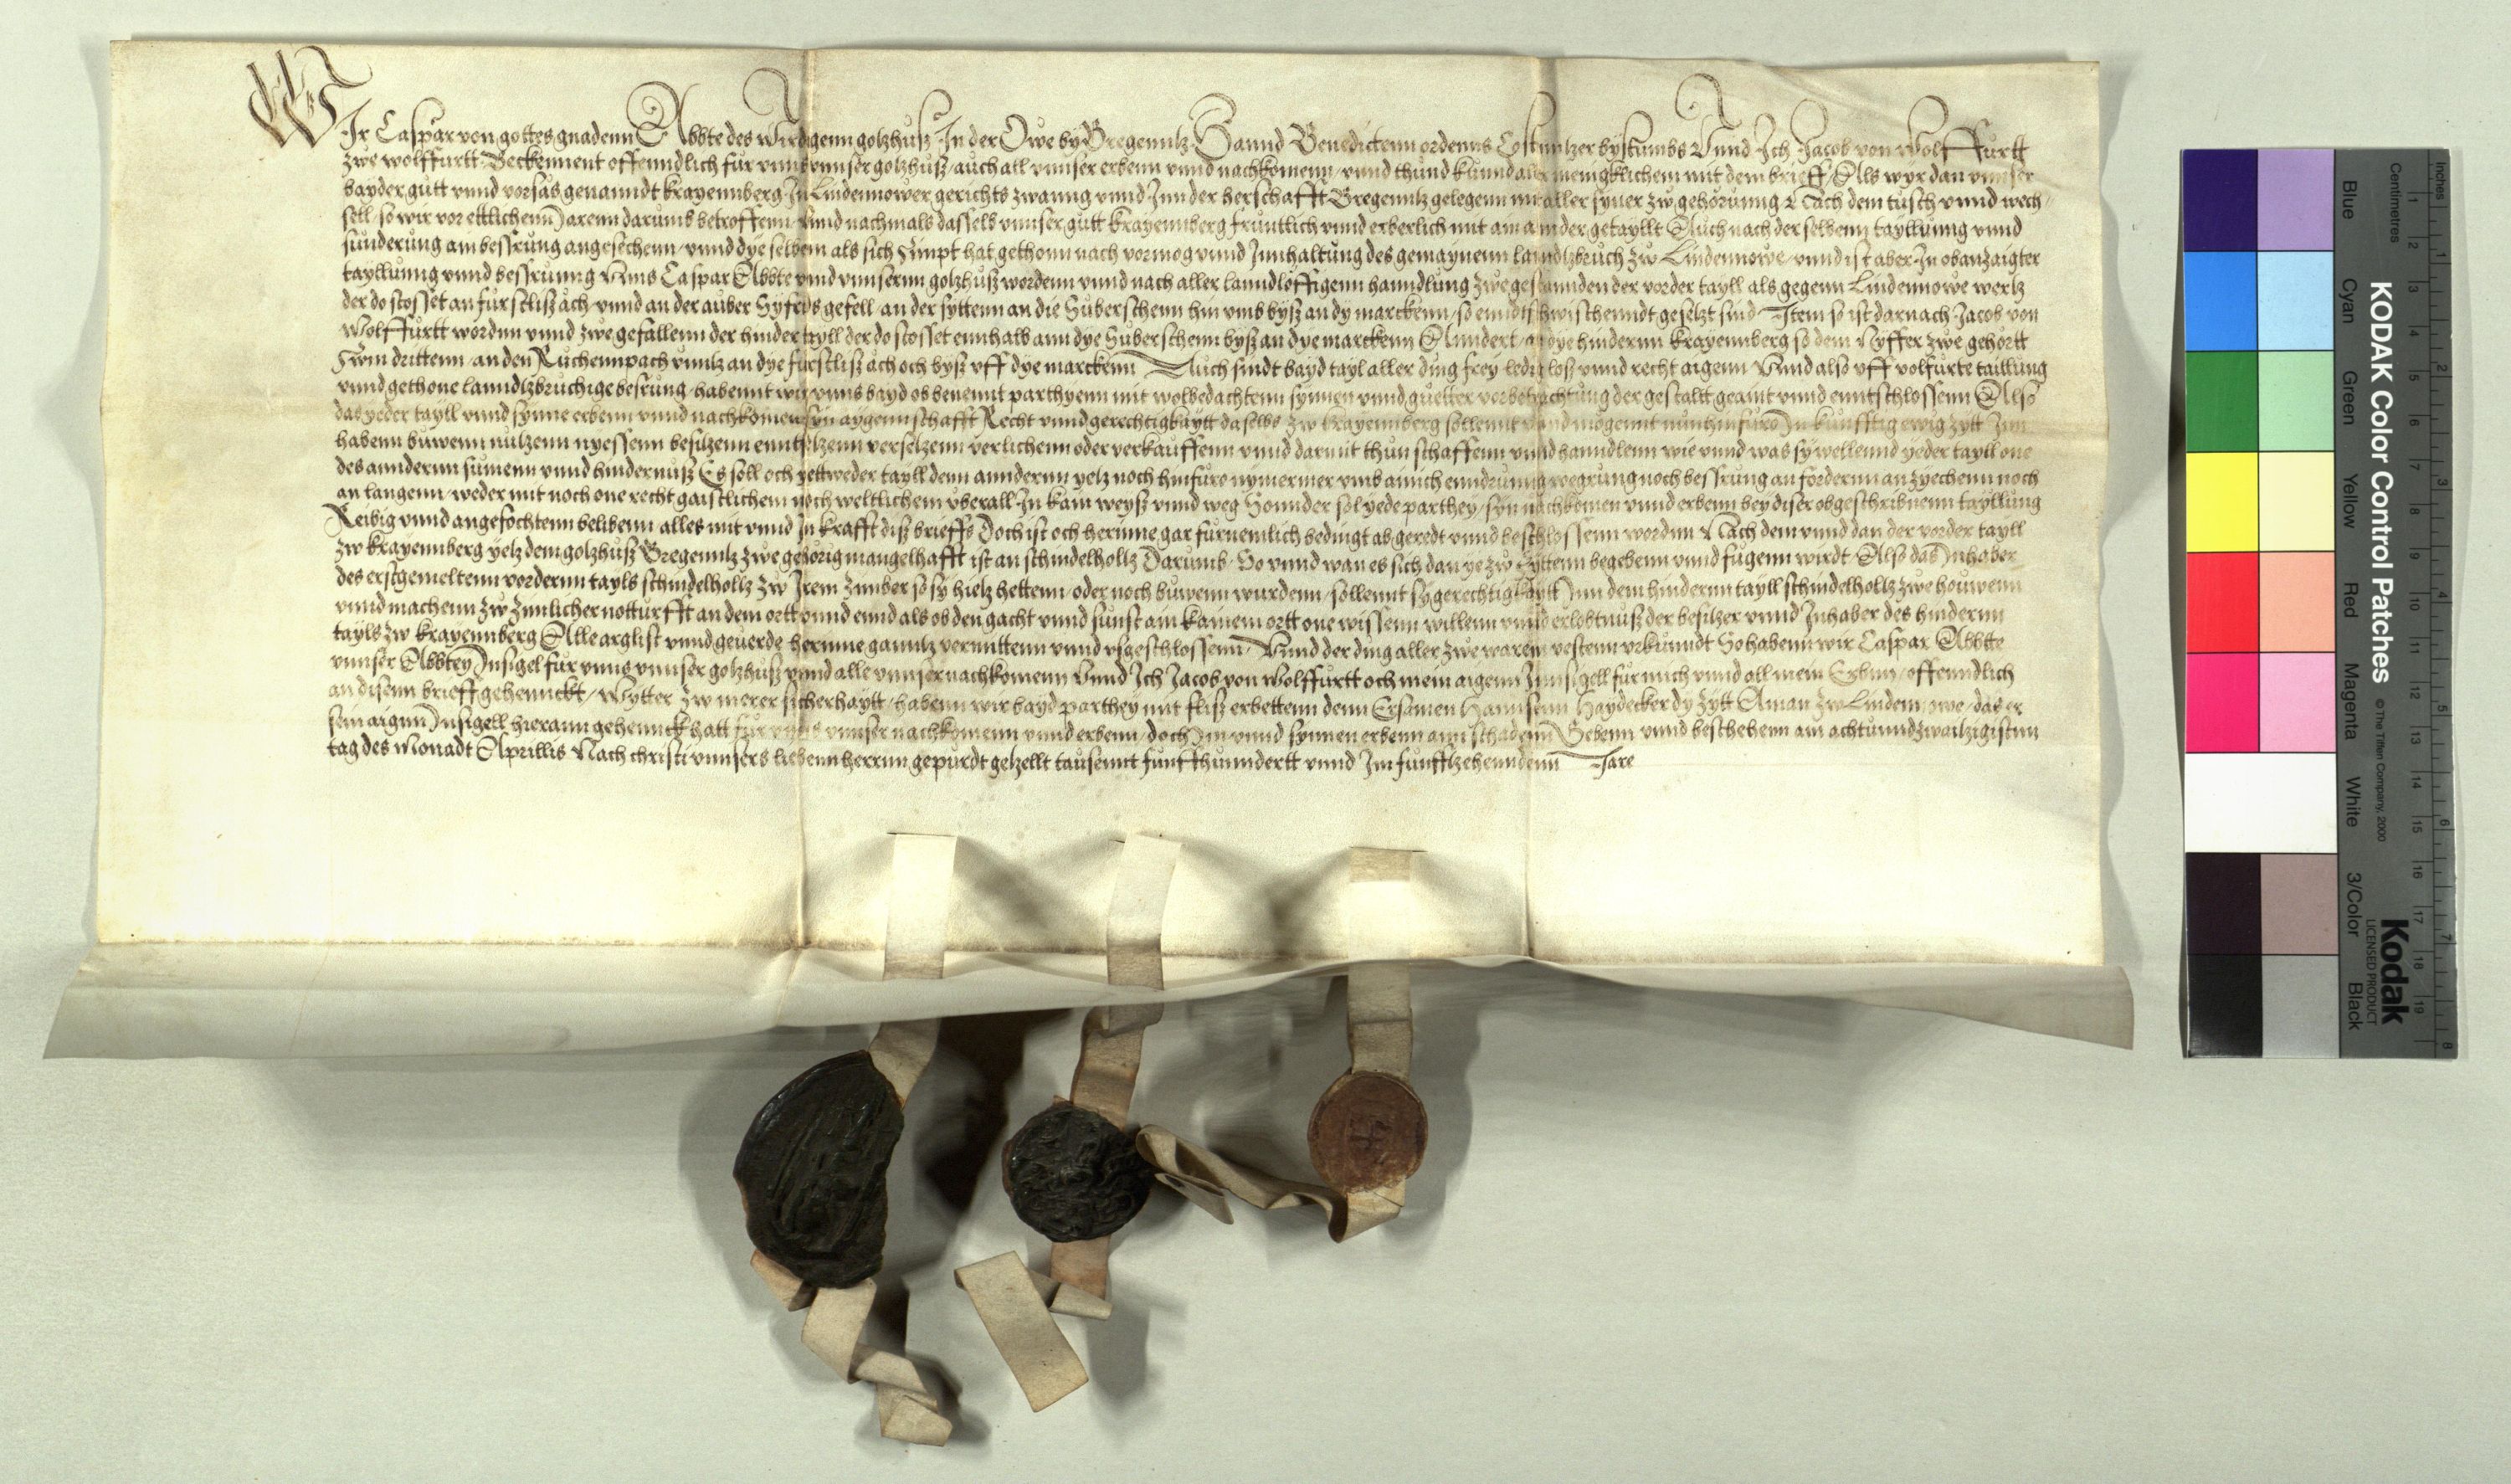 Wir Caspar von gottes gnadenn Abbte des wirdigenn gotzhuß In der Owe by Bregenntz Sannd Benedictenn ordenns Costenntzer bystumbs Vnnd Ich Jacob von Wolffurtt
zwe wolffurtt Beckennent offenndlich für vnns vnnser gotzhuß auch all vnnser erbenn vnnd nachkomenn vnnd thund kunnd aller menigklichem mit dem brieff Als wyr dan vnnser
bayder gutt vnnd vorsäs genanndt krayennberg In Lindennower gerichts zwanng vnnd Inn der herschafft Bregenntz gelegenn mit aller syner zw gehörunng Nach dem tusch vnnd wech
sell so wir vor ettlichenn Jarenn darumb betroffenn vnnd nachmals dasselb vnnser gutt krayennberg fruntlich vnnd erberlich mit ain annder getayllt Auch nach der selbenn tayllunng vnnd
sunderung ain bessrung angesechenn vnnd dye selbem als sich zimpt hat gethonn nach vormog vnnd Innhaltung des gemaynenn lanndtzbruch zw Lindennowe vnnd ist aber In obanzaigter
tayllunng vnnd bessrunng Vnns Caspar Abbte vnnd vnnserm gotzhuß wordenn vnnd nach aller lanndlöffigenn hanndlung zwegestannden der vorder tayll als gegenn Lindennowe wertz
der do stosset an fürstliß ach vnnd an der auber Syfrids gefell an der syttenn an die Suberschenn hin vmb byß an dy marckenn so enndtschwischenndt gesetzt sind Item so ist darnach Jacob von
Wolffurtt wordnn vnnd zwe gefallenn der hinder tayll der do stosset ennhalb ann dye Suberschenn byß an dye marckenn Anndert an dye hinderm krayennberg so dem Nyffer zwe gehortt
Zwm drittenn an den Ruchennpach vnntz an dye fürstliß ach och byß vff dye marckenn Auch sindt bayd tayl aller ding frey ledig loß vnnd recht aigenn Vnnd also vff volfürte taillung
vnnd gethone lanndtzbruchige besrung habennt wir vnns bayd obbenennt parthyenn mit wolbedachtenn synnen vnnd guetter vorbetrachtung der gestaltt geaint vnnd enntschlossenn Also
das yeder tayll vnnd synne erbenn vnnd nachkomenn syn aygennschafft Recht vnnd gerechtigkaytt daselbs zw krayennberg sollennt vnnd mögennt nun hinfüro In kunfftig ewig zytt Inn
habenn buwenn nutzenn nyessenn besitzenn enntsetzenn versetzenn verlichenn oder verkauffenn vnnd darmit thun schaffenn vnnd hanndlenn wie vnnd was sy wellennd yeder tayll one
des annderm sumenn vnnd hindernuß Es soll och yettweder tayll denn annderm yetz noch hinfüro nymermer vmb ainich enndrunng wegrung noch bessrung an forderm anzyechenn noch
an langenn weder mit noch one recht gaistlichem noch weltlichem vberall In kain weyß vnnd weg Sonnder sol yede parthey syn nachkomen vnnd erbenn bey diser obgeschribnenn tayllung
Reibig vnnd angefochtenn belibenn alles mit vnnd In krafft diß brieffs Doch ist och herinne gar fürnemlich bedingt abgeredt vnnd beschlossenn wordnn Nach dem vnnd dan der vorder tayll
zw krayennberg yetz dem gotzhuß Bregenntz zwe gehörig mangelhafft ist an schindelholtz Darumb So vnnd wan es sich dan ye zw zyttenn begebenn vnnd fügenn wirdt Also das Inhaber
des erstgemeltenn vorderm tayls schindelholtz zw Irem zimber so sy hietz hettenn oder noch buwenn wurdenn sollennt sy gerechtigkaytt Inn dem hinderm tayll schindelholtz zwe houwenn
vnnd machenn zw zimlicher notturfft an dem ortt vnnd ennd als ob den gacht vnnd sunst ain kainem ortt one wissenn willenn vnnd erlobtnuß der besitzer vnnd Inhaber des hinderm
tayls zw krayennberg Alle arglist vnnd geuerde herinne ganntz vermittenn vnnd vßgeschlossenn Vnnd der ding aller zwe warem vestenn vrkunndt So habenn wir Caspar Abbte
vnnser Abbtey Insigel für vnns vnnser gotzhuß vnnd alle vnnser nachkomenn Vnnd Ich Jacob von Wolffurtt och mein aigenn Innsigell für mich vnnd all mein Erbnn offenndlich
an disenn brieff gehennckt Wytter zw merer sicherhaytt habenn wir bayd parthey mit fliß erbettenn denn Ersamen Hannsenn Haydecker dy zytt Aman zw Lindennowe das er
sein aigenn Insigell hierann gehennckt hatt für vnns vnnser nachkomenn vnnd erbenn doch Im vnnd synnen erbenn ann schadenn Gebenn vnnd beschehenn am achtunndzwaitzigistnn
tag des Monadt Aprillis Nach christi vnnsers liebenn herrnn gepurdt getzellt tausennt funffhunndertt vnnd Im funfftzehenndenn Jare
KODAK Color Control Patches © The Tiffen Company, 2000
Kodak
LICENSED PRODUCT
Blue
Cyan
Green
Yellow
Red
Magenta
White
3/Color
Black
Centimetres
Inches
1 2 3 4 5 6 7 8 9 10 11 12 13 14 15 16 17 18 19
1 2 3 4 5 6 7 8